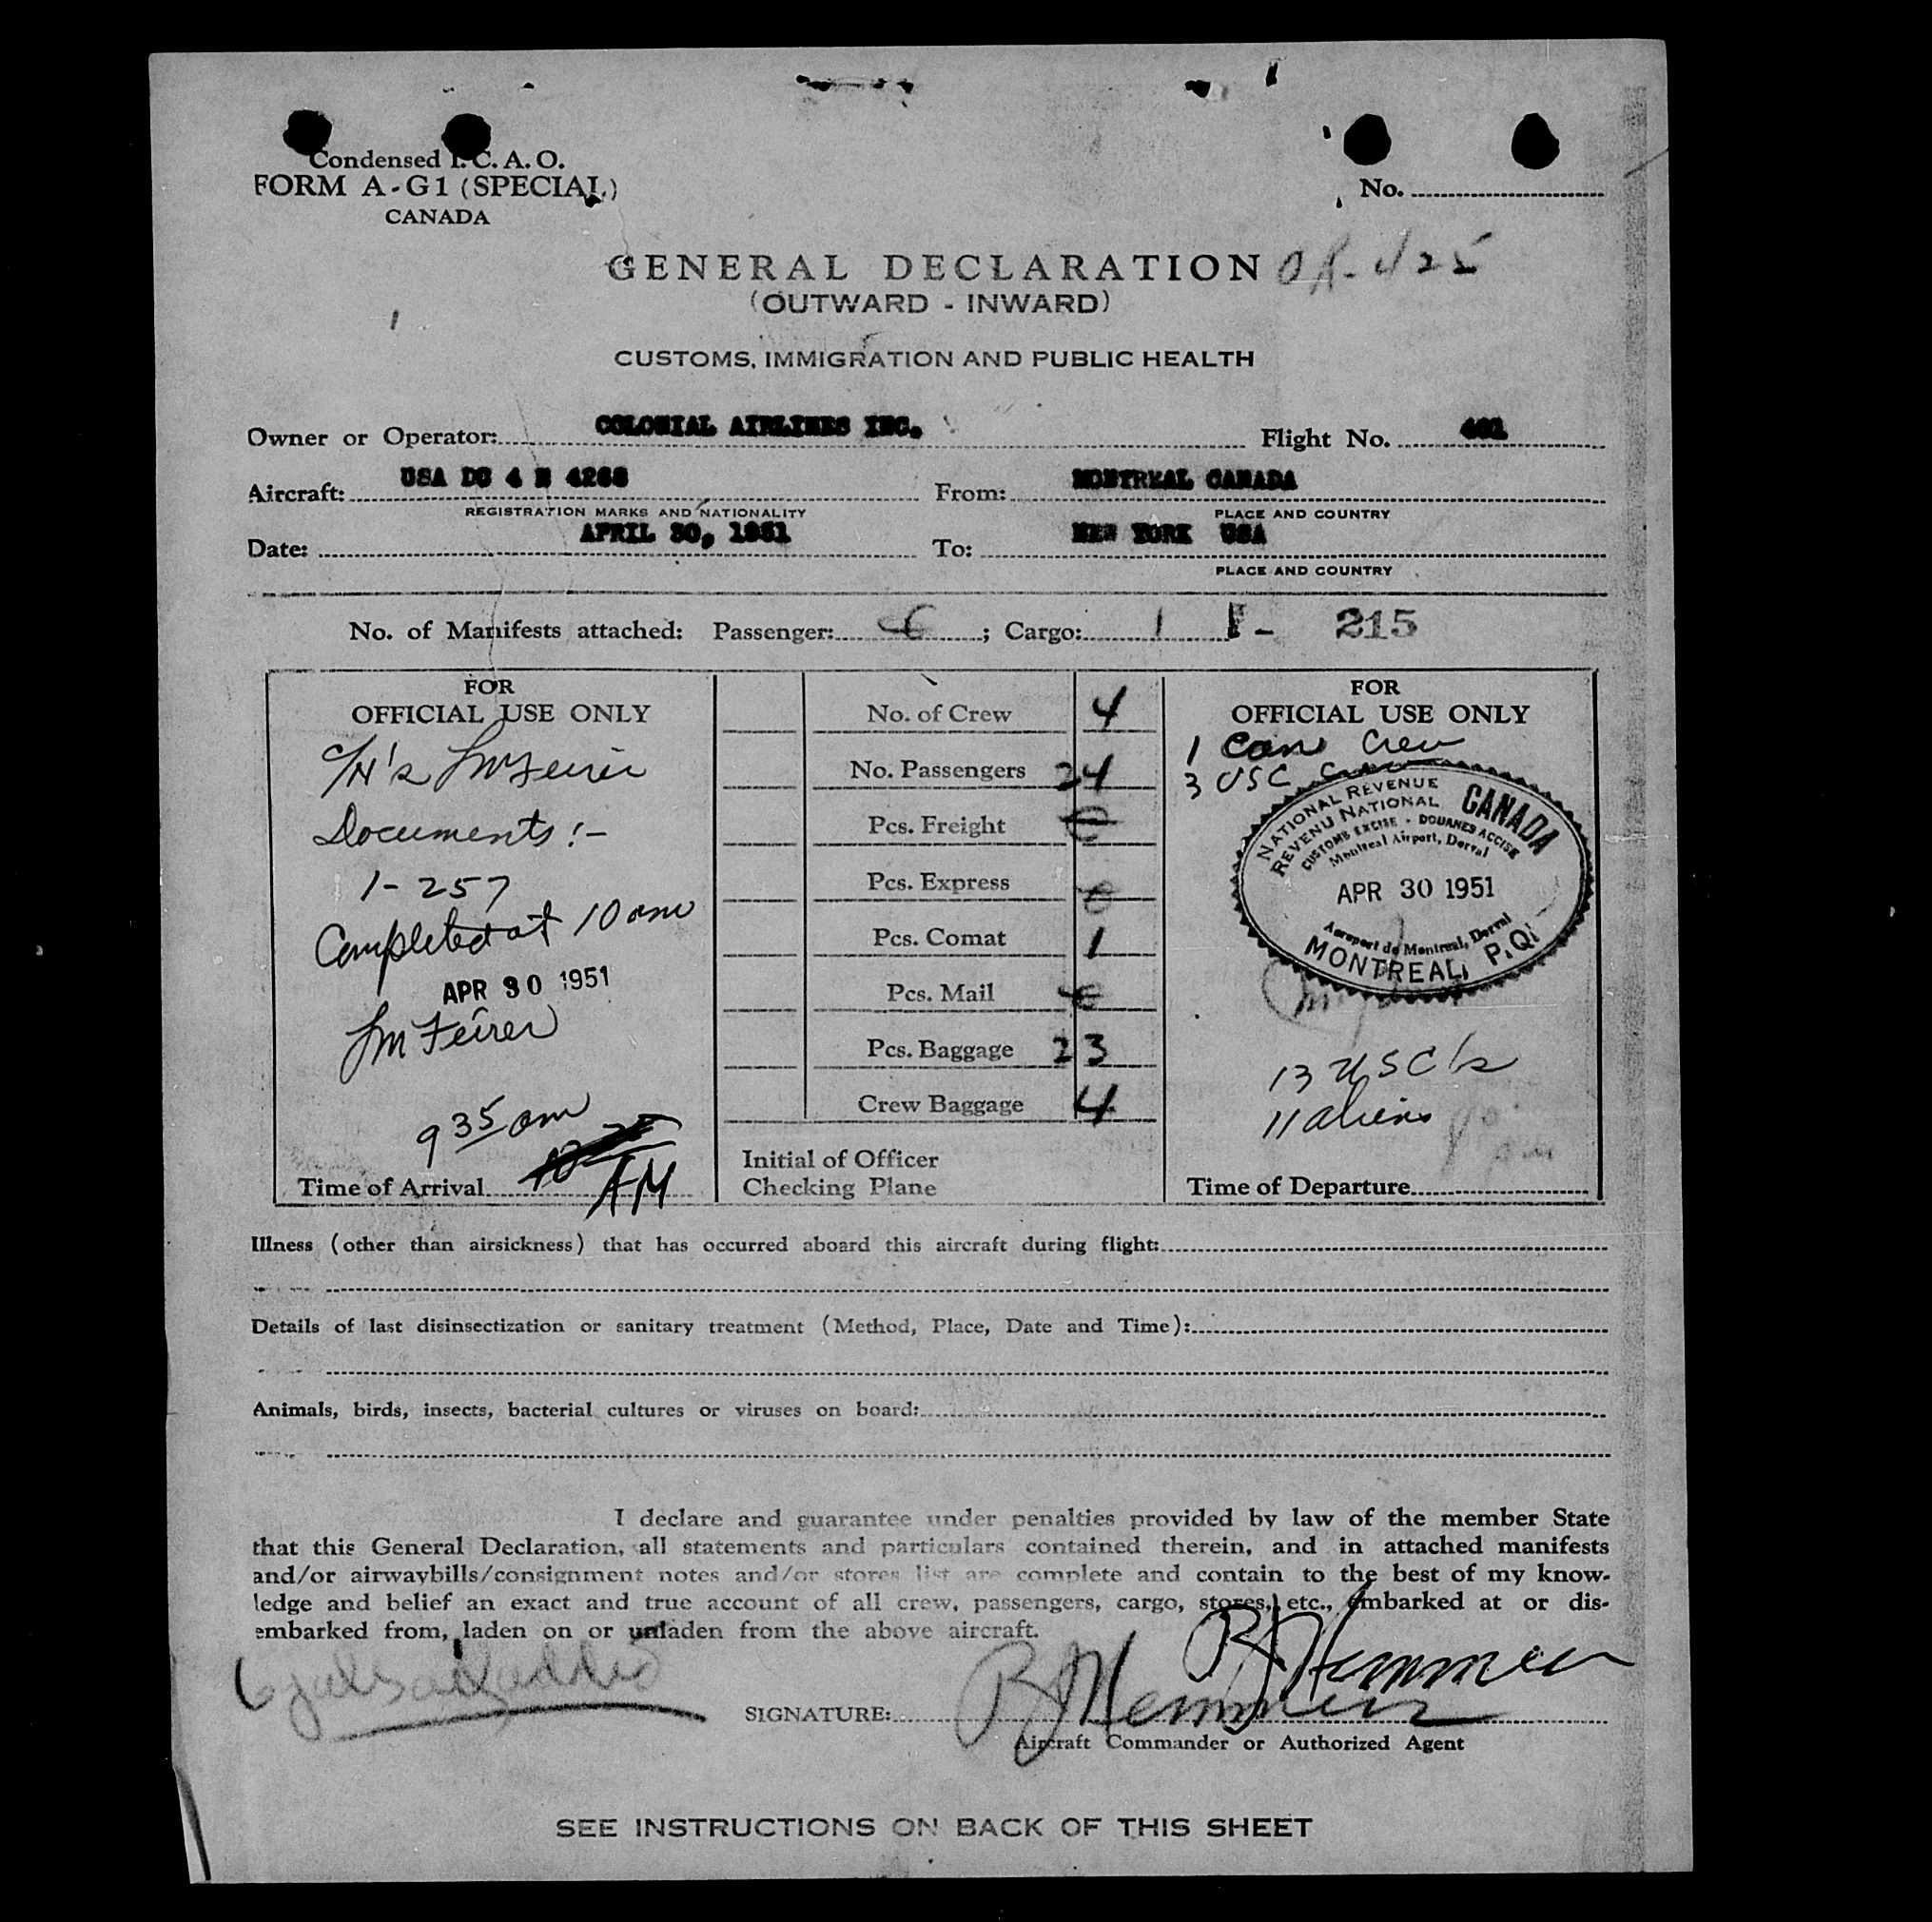 Condensed I. C. A. O.
FORM A-G1 (SPECIAL)
CANADA
No.
GENERAL DECLARATION
(OUTWARD - INWARD)
CUSTOMS, IMMIGRATION AND PUBLIC HEALTH
Owner or Operator: COLONIAL AIRLINES INC. Flight No. 401
Aircraft: USA DC 4 N 4268 From: MONTREAL CANADA
REGISTRATION MARKS AND NATIONALITY PLACE AND COUNTRY
Date: APRIL 30, 1951 To: NEW YORK USA
PLACE AND COUNTRY
No. of Manifests attached: Passenger: ; Cargo: 1 1- 215
FOR
OFFICIAL USE ONLY
Documents :-
1-257
Completed at 10 am
APR 30 1951
9 35 am
Time of Arrival AM
No. of Crew 4
No. Passengers 24
Pcs. Freight 0
Pcs. Express 0
Pcs. Comat 1
Pcs. Mail
Pcs. Baggage 23
Crew Baggage 4
Initial of Officer
Checking Plane
FOR
OFFICIAL USE ONLY
1 Can Crew
3 USC Crew
NATIONAL REVENUE
REVENU NATIONAL
CANADA
CUSTOMS EXCISE - DOUANES ACCISE
Montreal Airport, Dorval
APR 30 1951
Aeroport de Montreal, Dorval
MONTREAL, P.Q.
13 USC's
11 aliens
Time of Departure
Illness (other than airsickness) that has occurred aboard this aircraft during flight:
Details of last disinsectization or sanitary treatment (Method, Place, Date and Time):
Animals, birds, insects, bacterial cultures or viruses on board:
I declare and guarantee under penalties provided by law of the member State
that this General Declaration, all statements and particulars contained therein, and in attached manifests
and/or airwaybills/consignment notes and/or stores list are complete and contain to the best of my know-
ledge and belief an exact and true account of all crew, passengers, cargo, stores, etc., embarked at or dis-
embarked from, laden on or unladen from the above aircraft.
SIGNATURE:
Aircraft Commander or Authorized Agent
SEE INSTRUCTIONS ON BACK OF THIS SHEET